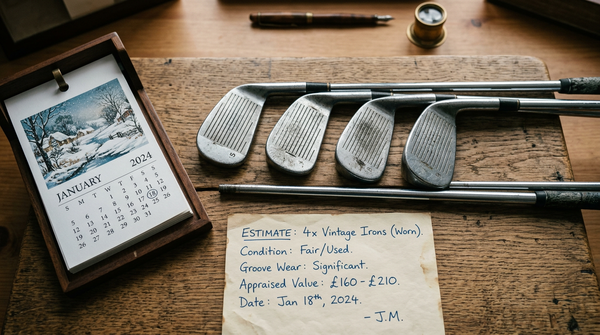 JANUARY 2024
S M T W T F S
26 27 28 29 30 31
S
ESTIMATE: 4x Vintage Irons (Worn).
Condition: Fair/Used.
Groove Wear: Significant.
Appraised Value: £160 - £210.
Date: Jan 18th, 2024.
- J.M.